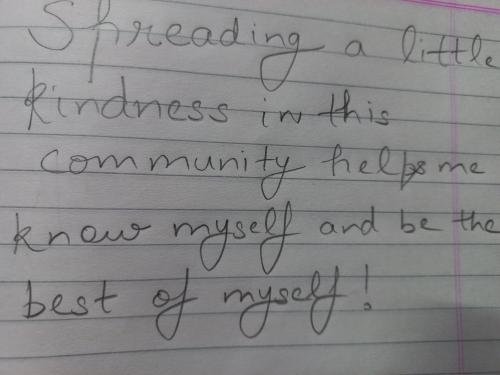 Spreading a little
kindness in this
community helps me
know myself and be the
best of myself!